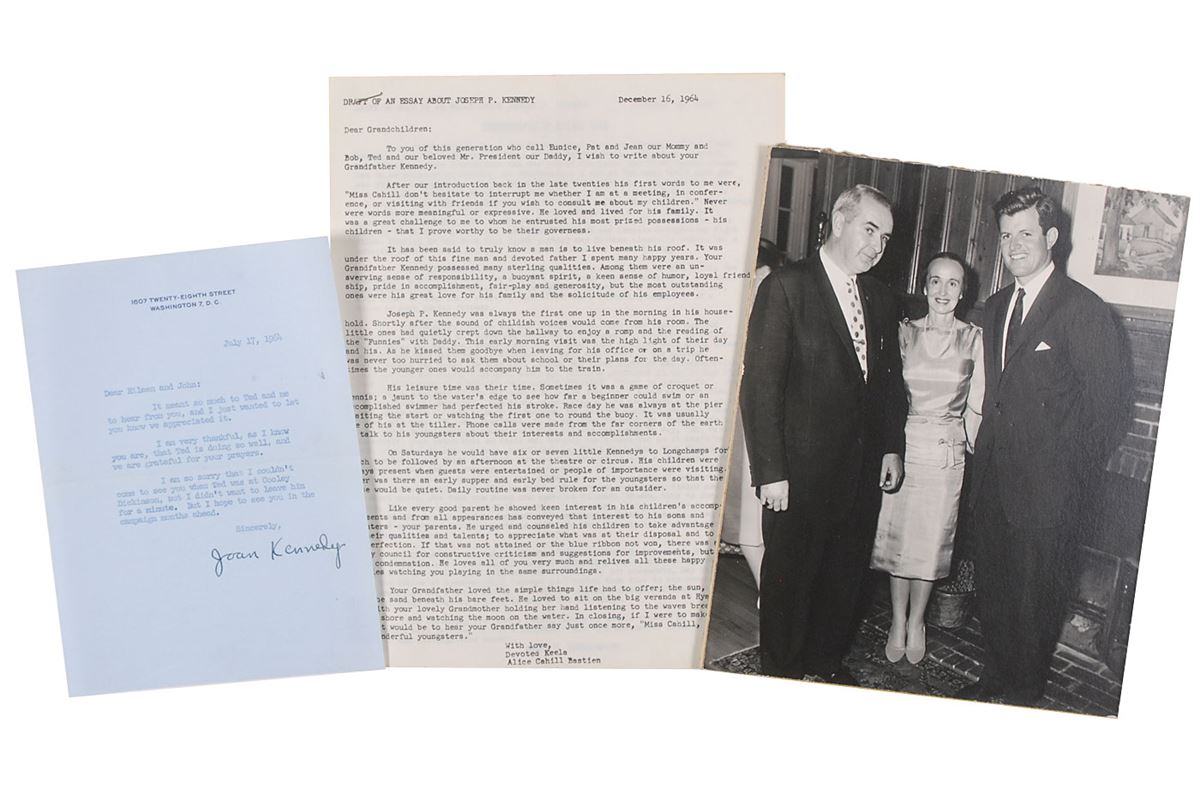 1607 TWENTY-EIGHTH STREET
WASHINGTON 7, D. C.
July 17, 1964
Dear Eileen and John:
It meant so much to Ted and me
to hear from you, and I just wanted to let
you know we appreciated it.
I am very thankful, as I know
you are, that Ted is doing so well, and
we are grateful for your prayers.
I am so sorry that I couldn't
come to see you when Ted was at Cooley
Dickinson, but I didn't want to leave him
for a minute. But I hope to see you in the
campaign months ahead.
Sincerely,
Joan Kennedy
DRAFT OF AN ESSAY ABOUT JOSEPH P. KENNEDY December 16, 1964
Dear Grandchildren:
To you of this generation who call Eunice, Pat and Jean our Mommy and
Bob, Ted and our beloved Mr. President our Daddy, I wish to write about your
Grandfather Kennedy.
After our introduction back in the late twenties his first words to me were,
"Miss Cahill don't hesitate to interrupt me whether I am at a meeting, in confer-
ence, or visiting with friends if you wish to consult me about my children." Never
were words more meaningful or expressive. He loved and lived for his family. It
was a great challenge to me to whom he entrusted his most prized possessions - his
children - that I prove worthy to be their governess.
It has been said to truly know a man is to live beneath his roof. It was
under the roof of this fine man and devoted father I spent many happy years. Your
Grandfather Kennedy possessed many sterling qualities. Among them were an un-
swerving sense of responsibility, a buoyant spirit, a keen sense of humor, loyal friend
ship, pride in accomplishment, fair-play and generosity, but the most outstanding
ones were his great love for his family and the solicitude of his employees.
Joseph P. Kennedy was always the first one up in the morning in his house-
hold. Shortly after the sound of childish voices would come from his room. The
little ones had quietly crept down the hallway to enjoy a romp and the reading of
the "Funnies" with Daddy. This early morning visit was the high light of their day
and his. As he kissed them goodbye when leaving for his office or on a trip he
was never too hurried to ask them about school or their plans for the day. Often-
imes the younger ones would accompany him to the train.
His leisure time was their time. Sometimes it was a game of croquet or
ennis; a jaunt to the water's edge to see how far a beginner could swim or an
complished swimmer had perfected his stroke. Race day he was always at the pier
aiting the start or watching the first one to round the buoy. It was usually
e of his at the tiller. Phone calls were made from the far corners of the earth
talk to his youngsters about their interests and accomplishments.
On Saturdays he would have six or seven little Kennedys to Longchamps for
ch to be followed by an afternoon at the theatre or circus. His children were
ays present when guests were entertained or people of importance were visiting.
er was there an early supper and early bed rule for the youngsters so that the
e would be quiet. Daily routine was never broken for an outsider.
Like every good parent he showed keen interest in his children's accomp
ments and from all appearances has conveyed that interest to his sons and
hters - your parents. He urged and counseled his children to take advantage
heir qualities and talents; to appreciate what was at their disposal and to
erfection. If that was not attained or the blue ribbon not won, there was
y council for constructive criticism and suggestions for improvements, but
condemnation. He loves all of you very much and relives all these happy
es watching you playing in the same surroundings.
Your Grandfather loved the simple things life had to offer; the sun,
he sand beneath his bare feet. He loved to sit on the big veranda at Hya
ith your lovely Grandmother holding her hand listening to the waves bre
shore and watching the moon on the water. In closing, if I were to mak
t would be to hear your Grandfather say just once more, "Miss Cahill,
nderful youngsters."
With love,
Devoted Keela
Alice Cahill Bastien